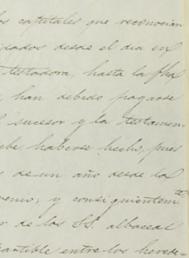 los capitales que reconocian
dados desde el dia en
testadora, hasta la fha
han debido pagarse
l sucesor y la testamen-
ebe haberse hecho, pues
s de un año desde la
y consiguientem^te
r de los SS. albaceas
entre los herede-